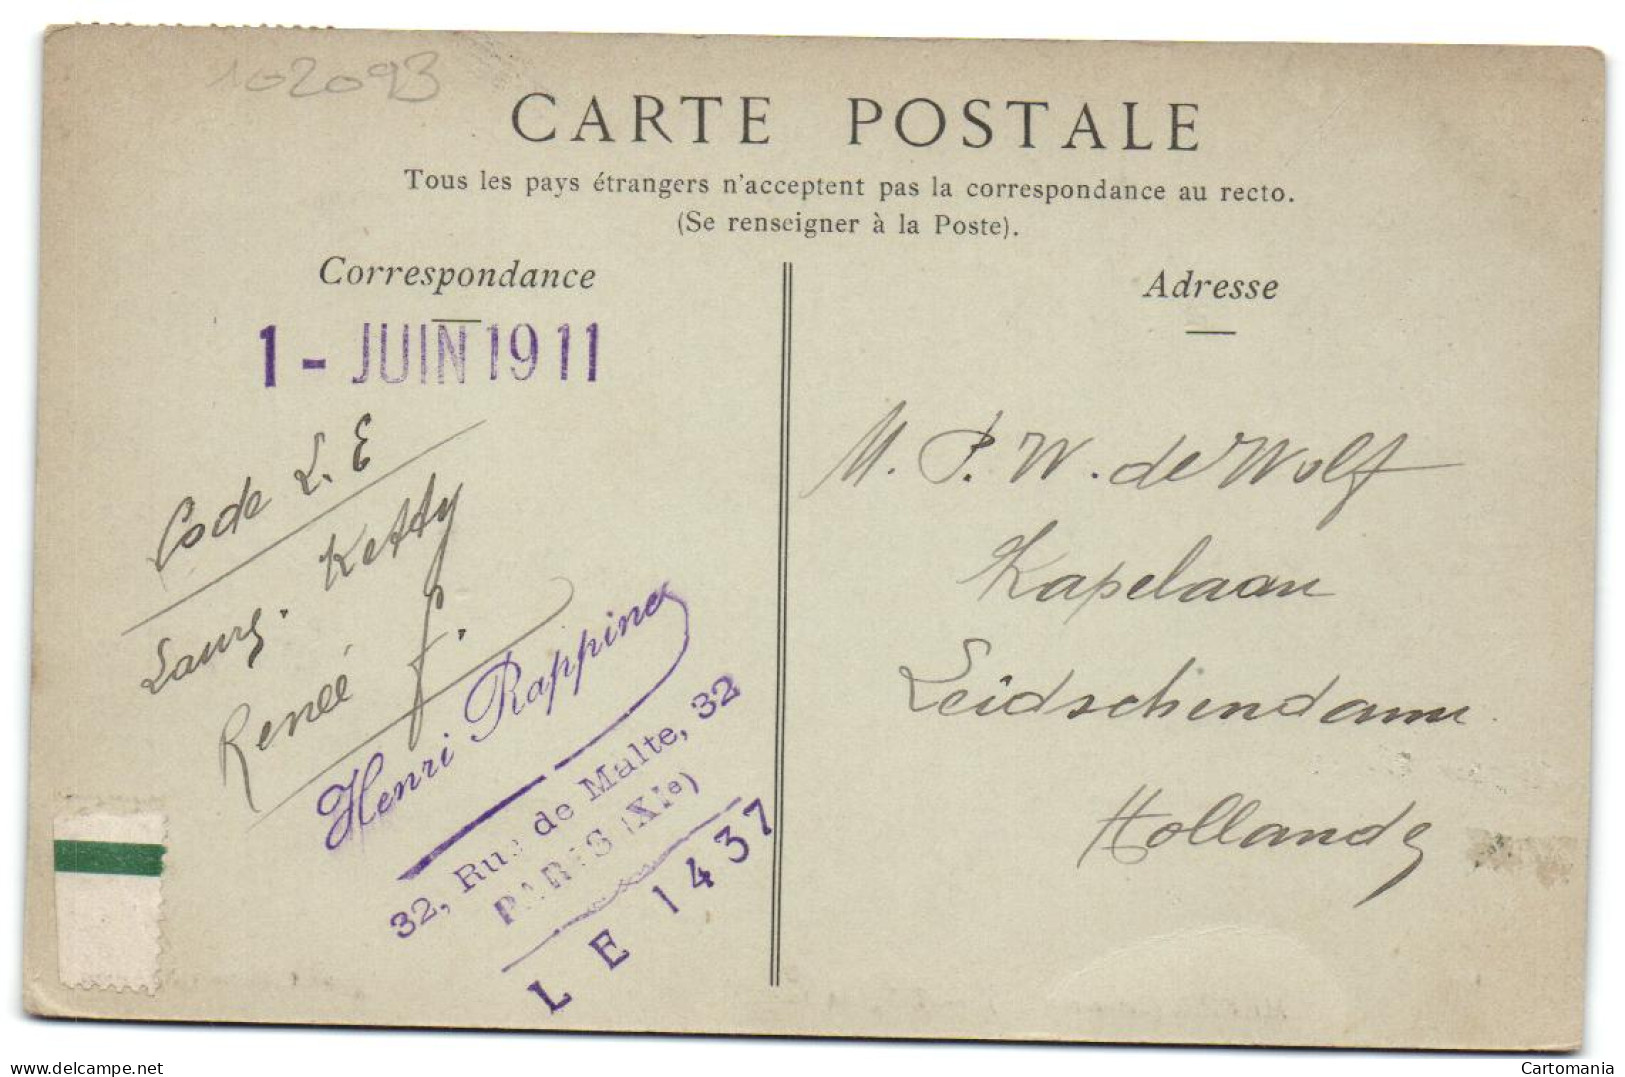 102093
CARTE POSTALE
Tous les pays étrangers n'acceptent pas la correspondance au recto.
(Se renseigner à la Poste).
Correspondance
1 - JUIN 1911
Code L.E
Ketty
Reneé f.
Henri Rappine
32, Rue de Malte, 32
PARIS (XIe)
LE 1437
Adresse
M. P. W. de Wolf
Kapelaan
Leidschendamm
Hollande
delcampe.net
Cartomania